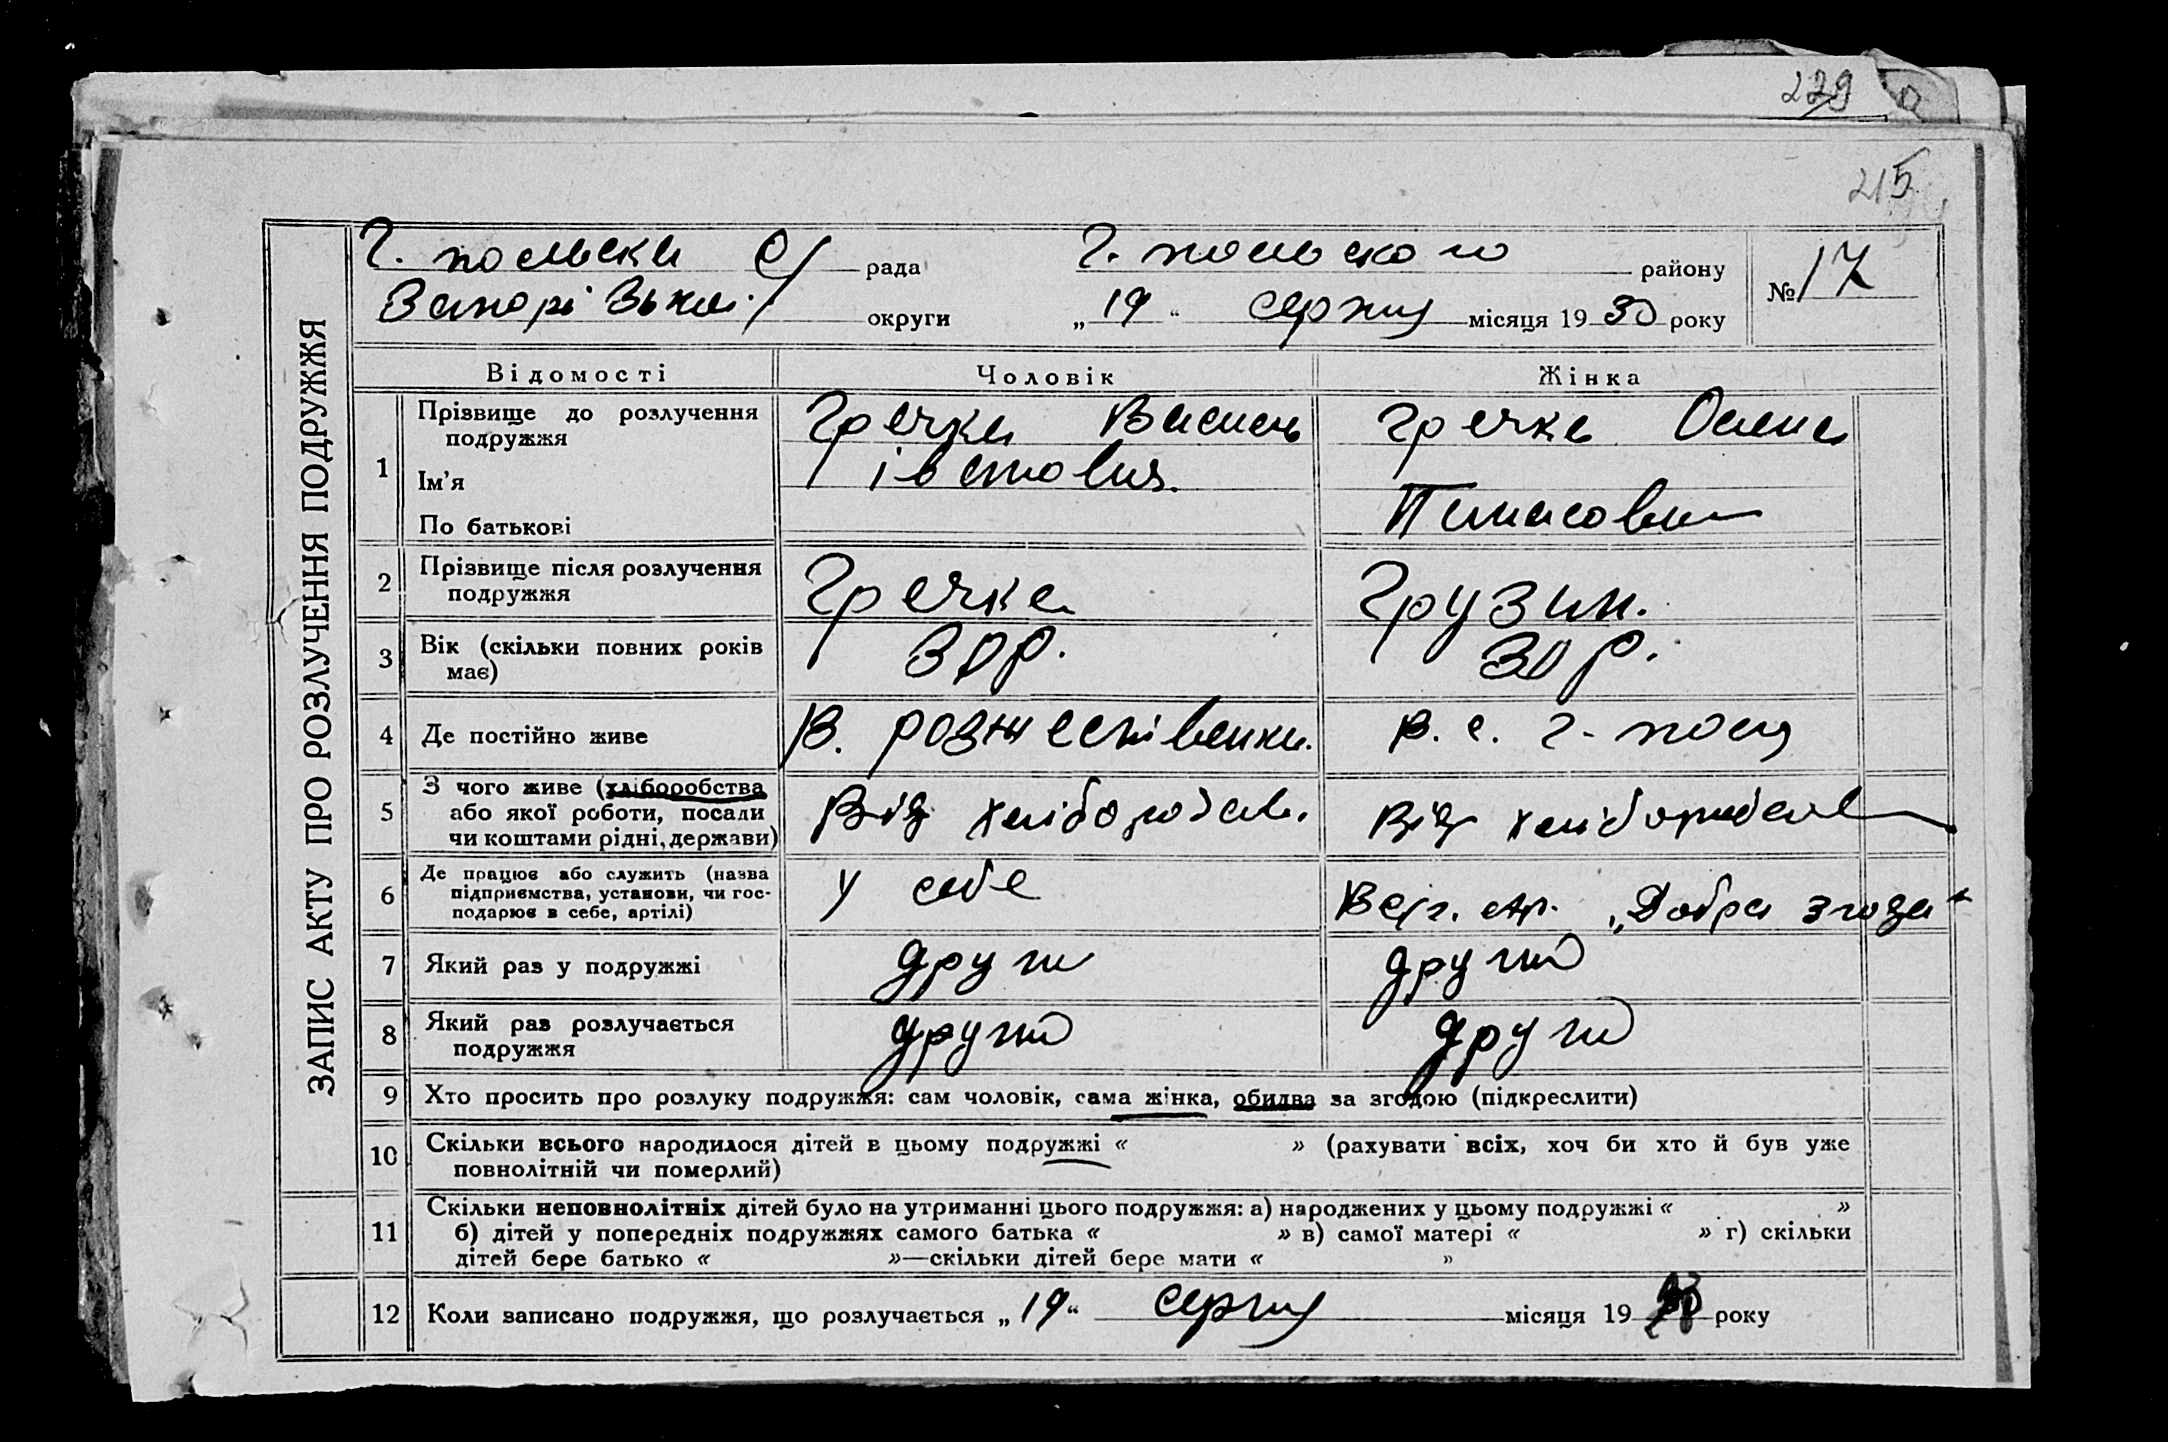 229
215
ЗАПИС АКТУ ПРО РОЗЛУЧЕННЯ ПОДРУЖЖЯ
Г. польска с/ рада Г. польского району №17
Запорізької округи „19" серпня місяця 1930 року
Відомості Чоловік Жінка
1 Прізвище до розлучення Гречка Василь Гречка Олена
подружжя
Ім'я
По батькові
2 Прізвище після розлучення Гречка Грузин.
подружжя
3 Вік (скільки повних років 30 р. 30 р.
має)
4 Де постійно живе В. В. с. Г-поля
5 З чого живе (хліборобства
або якої роботи, посади Від хліборобств. Від
чи коштами рідні, держави)
6 Де працює або служить (назва
підприємства, установи, чи гос- у себе „Добра згода"
подарює в себе, артілі)
7 Який раз у подружжі други другий
8 Який раз розлучається другий други
подружжя
9 Хто просить про розлуку подружжя: сам чоловік, сама жінка, обидва за згодою (підкреслити)
10 Скільки всього народилося дітей в цьому подружжі « » (рахувати всіх, хоч би хто й був уже
повнолітній чи померлий)
11 Скільки неповнолітніх дітей було на утриманні цього подружжя: а) народжених у цьому подружжі « »
б) дітей у попередніх подружжях самого батька « » в) самої матері « » г) скільки
дітей бере батько « »—скільки дітей бере мати « »
12 Коли записано подружжя, що розлучається „19" серпня місяця 19 року